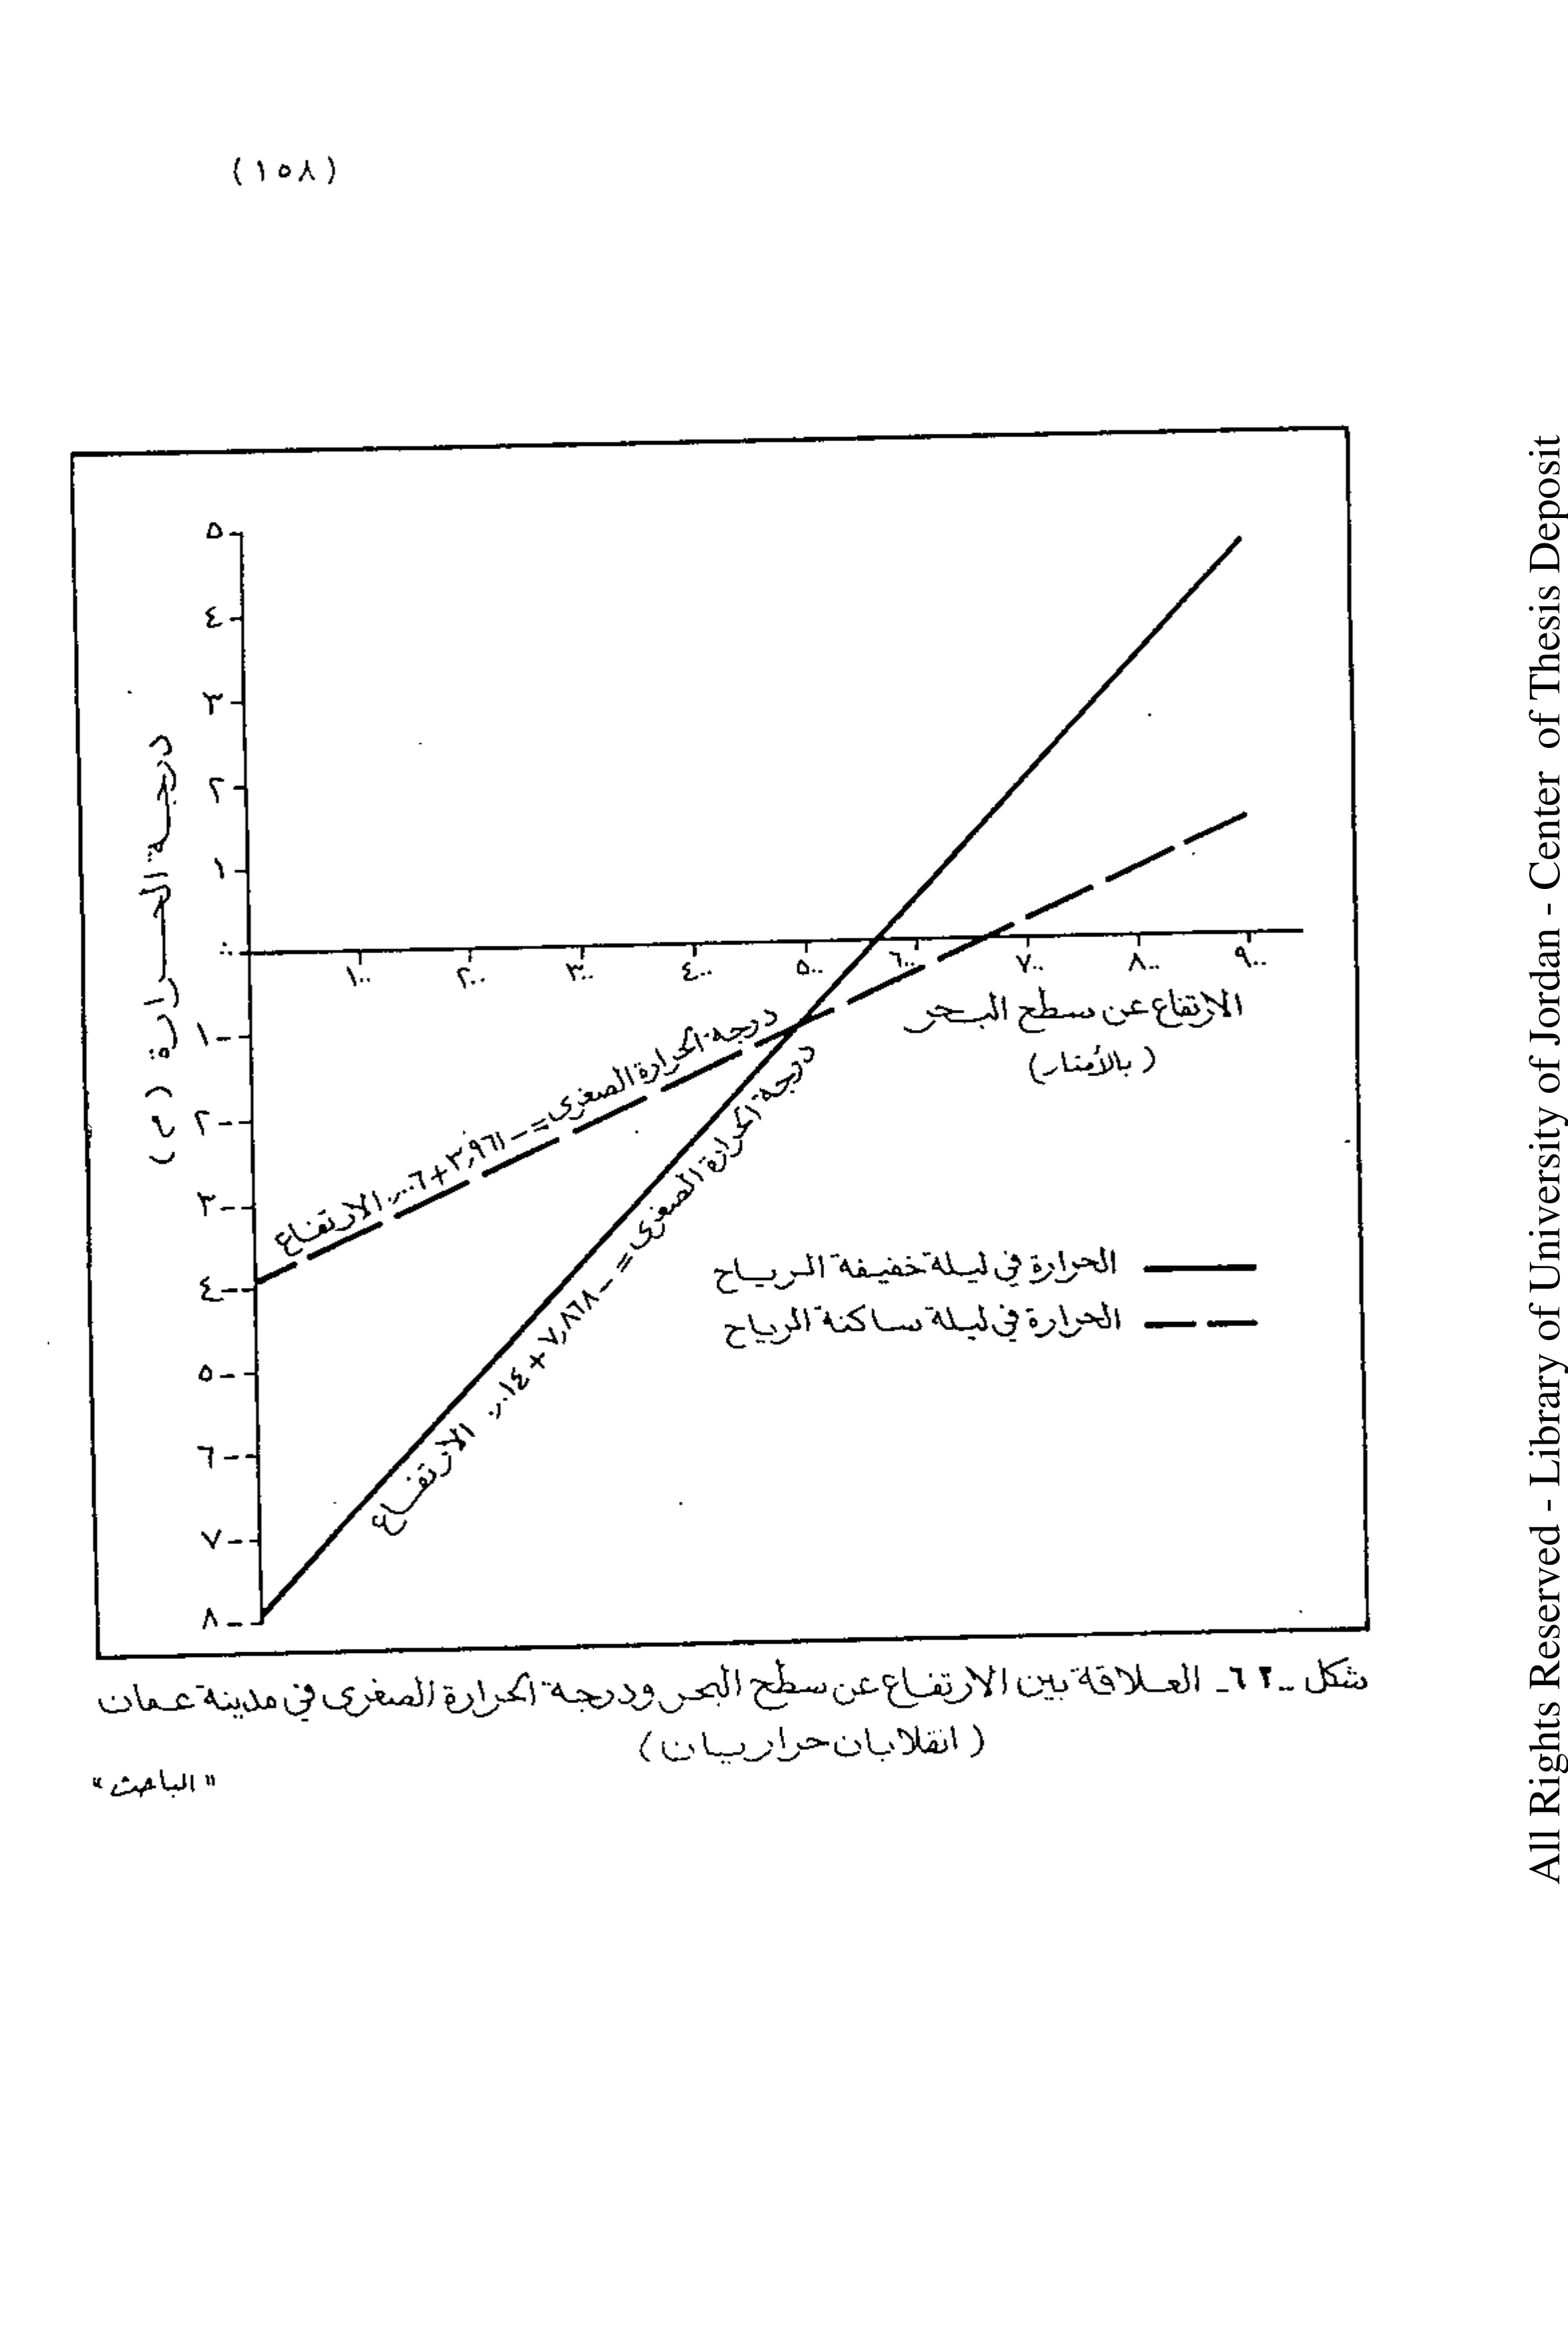 (١٥٨)
٥
٤
٣
٢
١
٠
-١
-٢
-٣
-٤
-٥
-٦
-٧
-٨
درجة الحرارة (م)
١٠٠ ٢٠٠ ٣٠٠ ٤٠٠ ٥٠٠ ٦٠٠ ٧٠٠ ٨٠٠ ٩٠٠
الارتفاع عن سطح البحر
(بالأمتار)
درجة الحرارة الصغرى = -٣,٩٦١ + ٠,٠٠٦ الارتفاع
درجة الحرارة الصغرى = -٧,٨٦٨ + ٠,٠١٤ الارتفاع
الحرارة في ليلة خفيفة الرياح
الحرارة في ليلة ساكنة الرياح
شكل -٦٢- العلاقة بين الارتفاع عن سطح البحر ودرجة الحرارة الصغرى في مدينة عمان
(انقلابان حراريان)
"الباحث"
All Rights Reserved - Library of University of Jordan - Center of Thesis Deposit